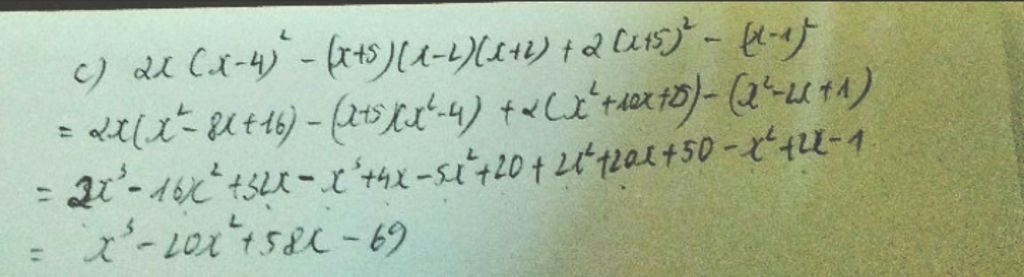 c) 2x(x-4)² - (x+5)(x-2)(x+2) + 2(x+5)² - (x-1)²
= 2x(x²-8x+16) - (x+5)(x²-4) + 2(x²+10x+25) - (x²-2x+1)
= 2x³-16x²+32x-x³+4x-5x²+20+2x²+20x+50-x²+2x-1
= x³-20x²+58x-69